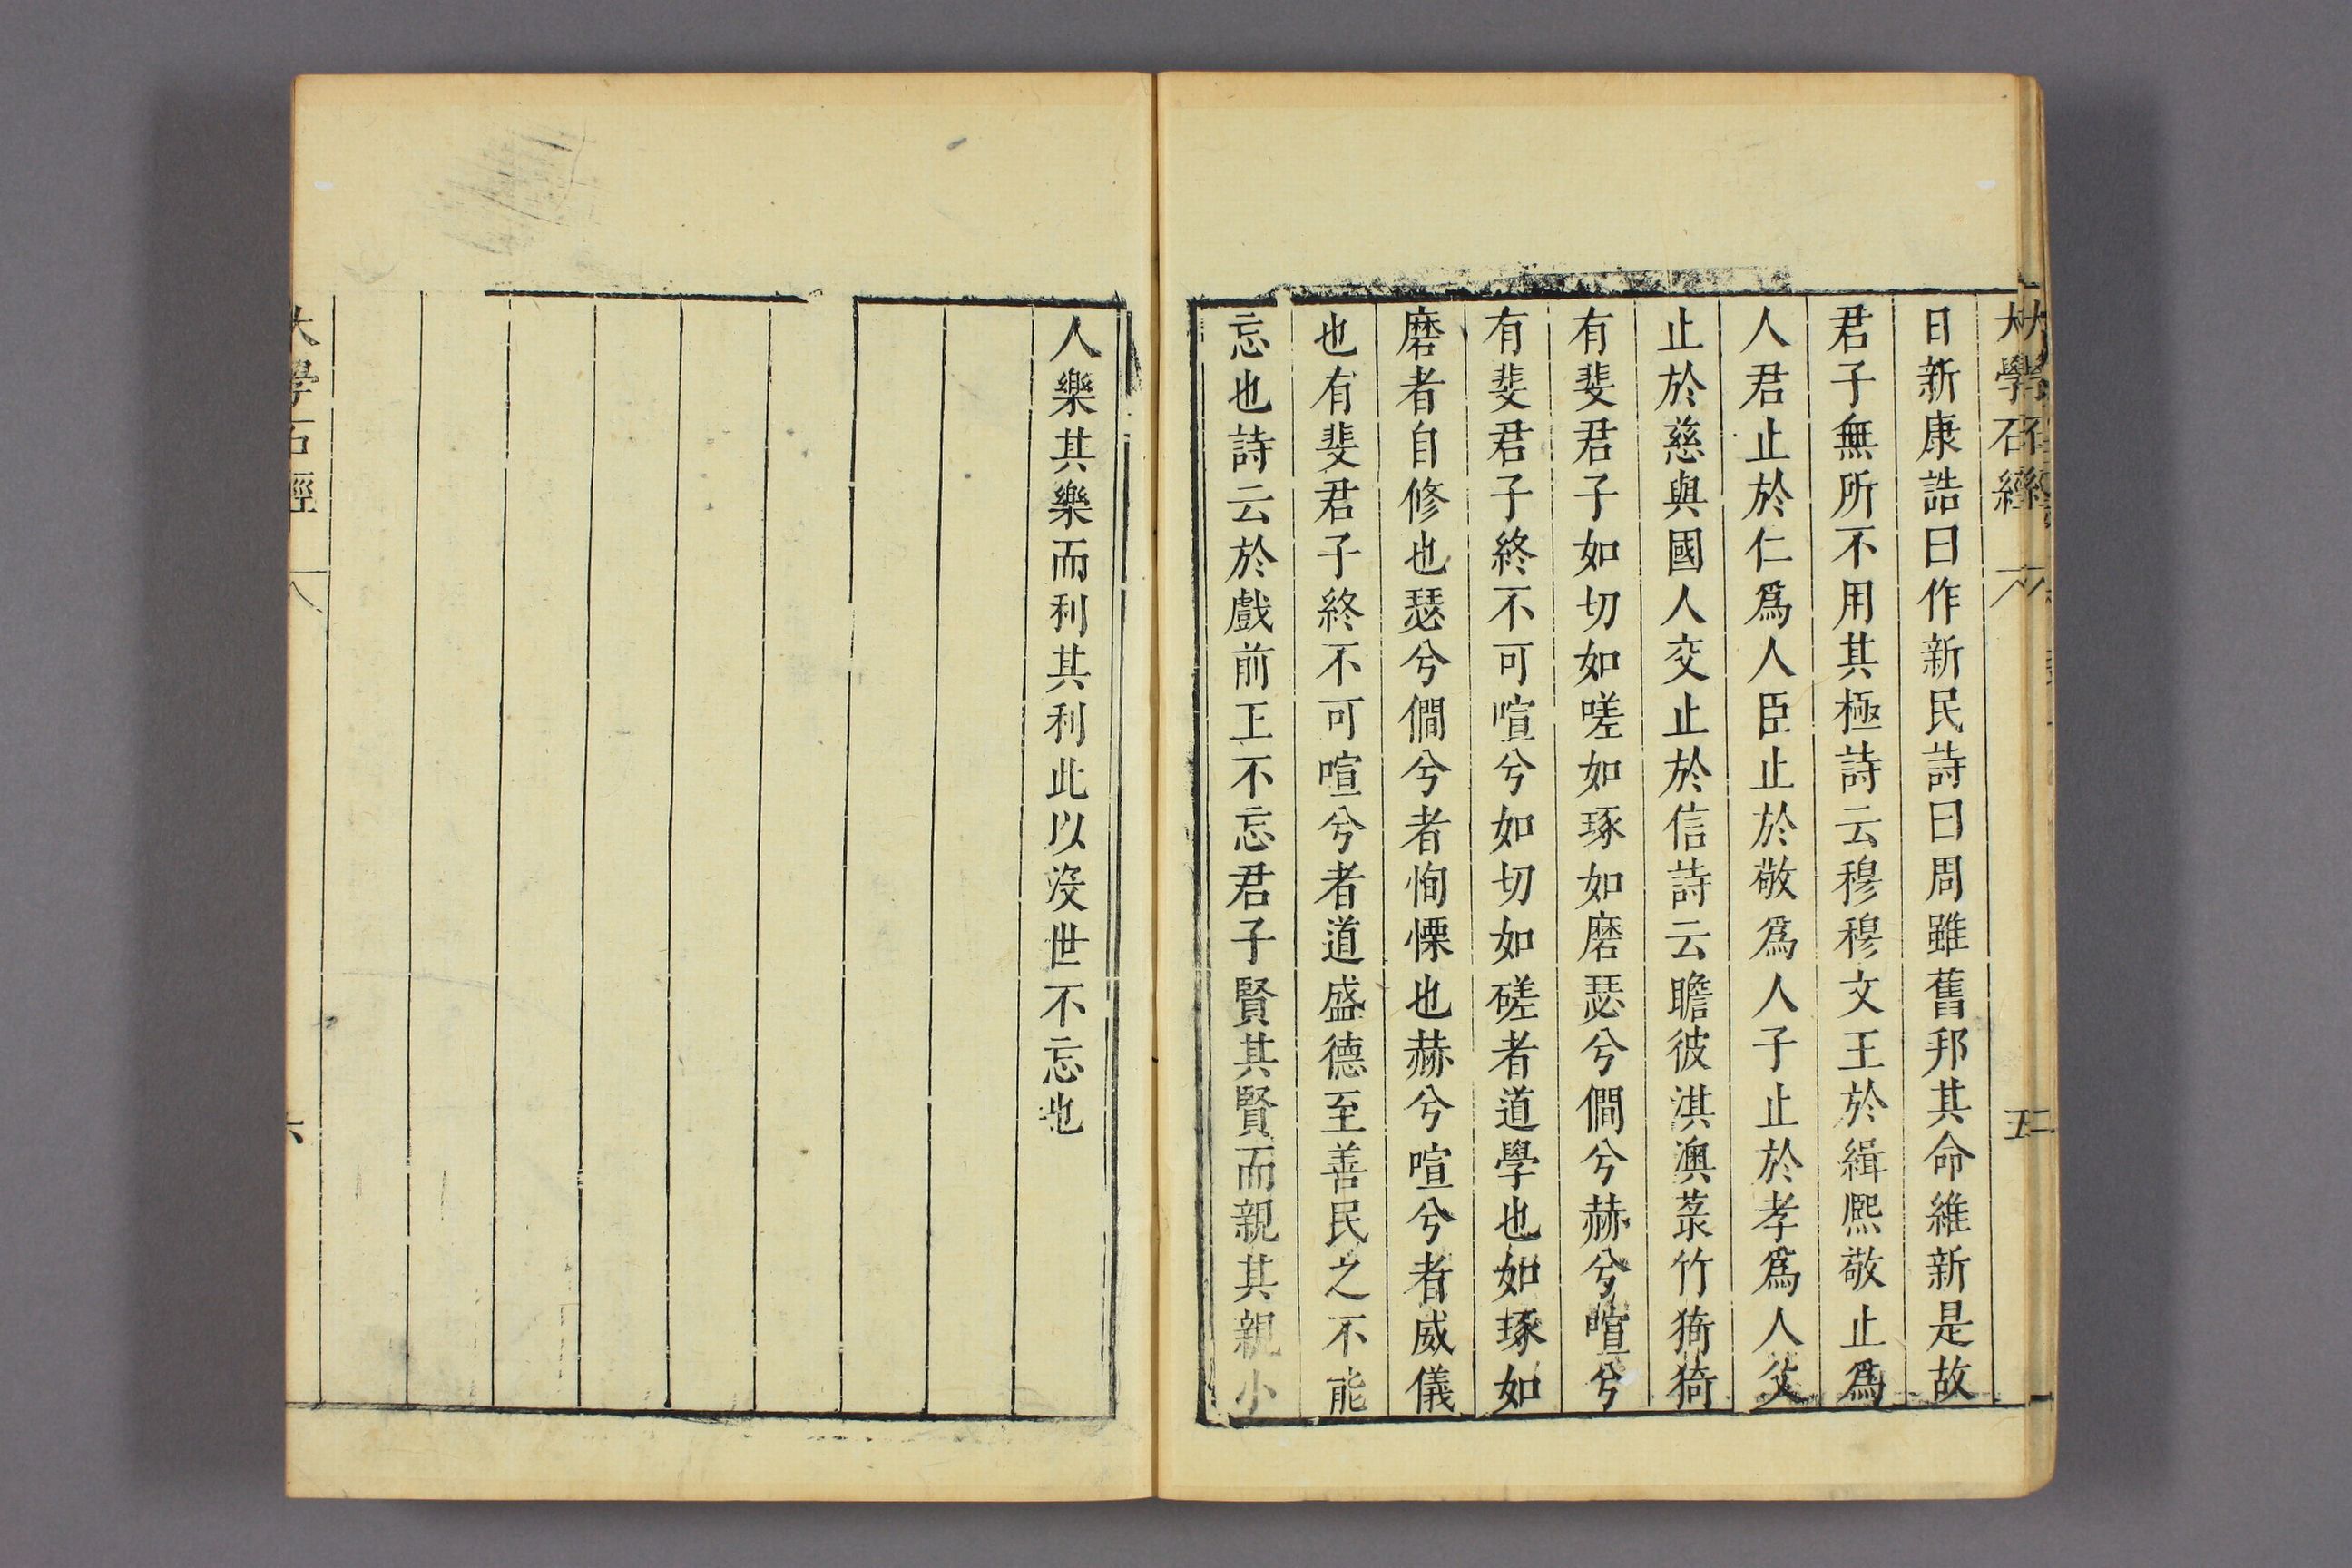 大學石經
五
日新康誥曰作新民詩曰周雖舊邦其命維新是故
君子無所不用其極詩云穆穆文王於緝熈敬止爲
人君止於仁爲人臣止於敬爲人子止於孝爲人父
止於慈與國人交止於信詩云瞻彼淇澳菉竹猗猗
有斐君子如切如嗟如琢如磨瑟兮僩兮赫兮喧兮
有斐君子終不可喧兮如切如磋者道學也如琢如
磨者自修也瑟兮僩兮者恂慄也赫兮喧兮者威儀
也有斐君子終不可喧兮者道盛德至善民之不能
忘也詩云於戲前王不忘君子賢其賢而親其親小
人樂其樂而利其利此以沒世不忘也
大學石經
六